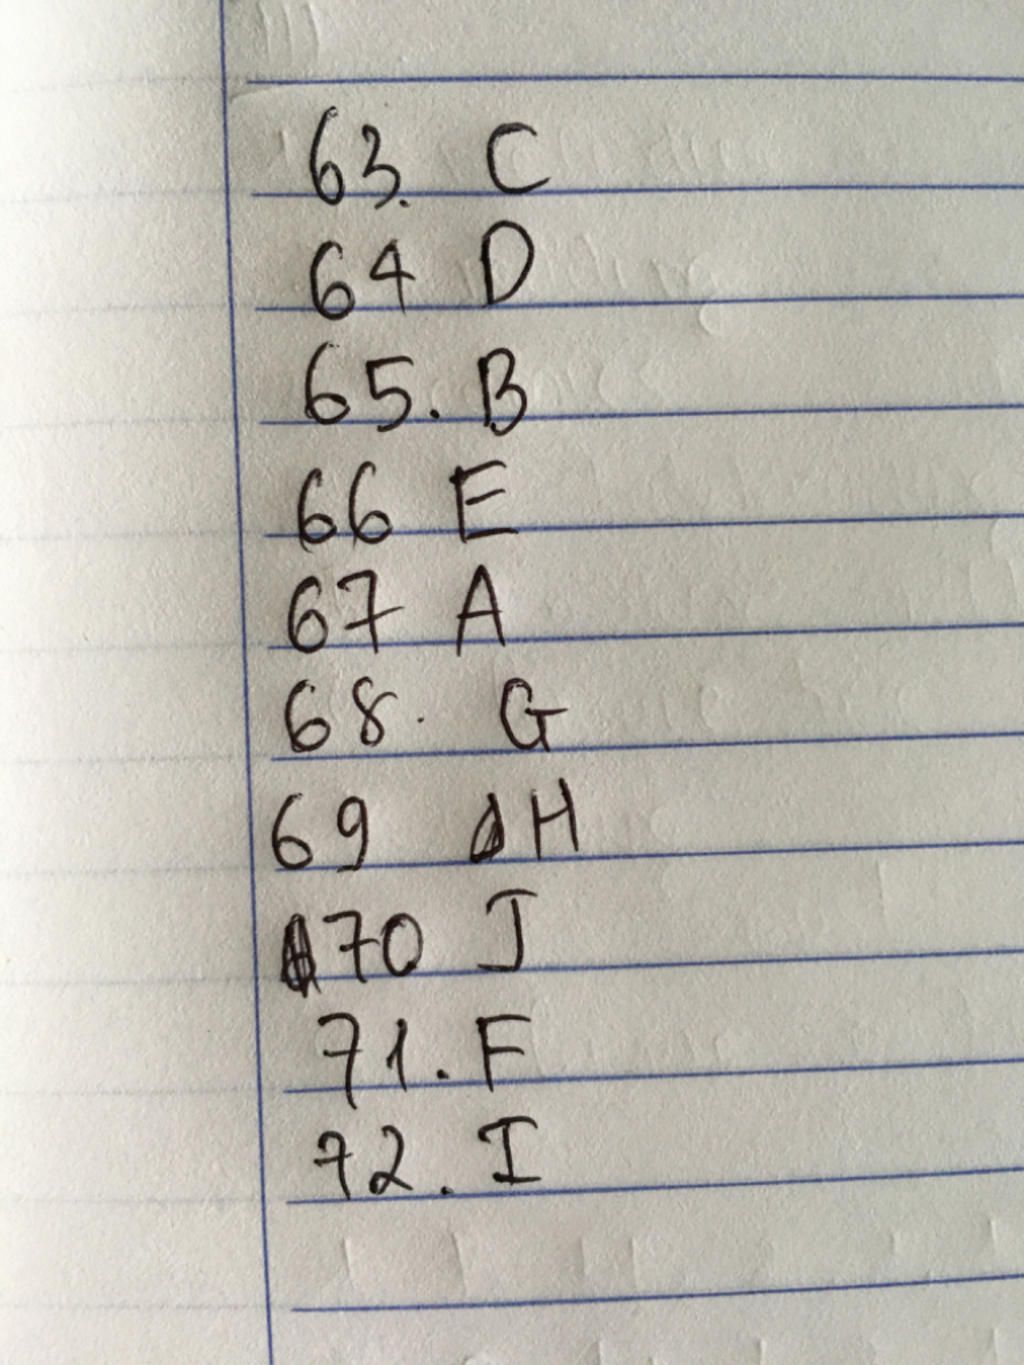 63. C
64 D
65. B
66 E
67 A
68. G
69 H
70 J
71. F
72. I